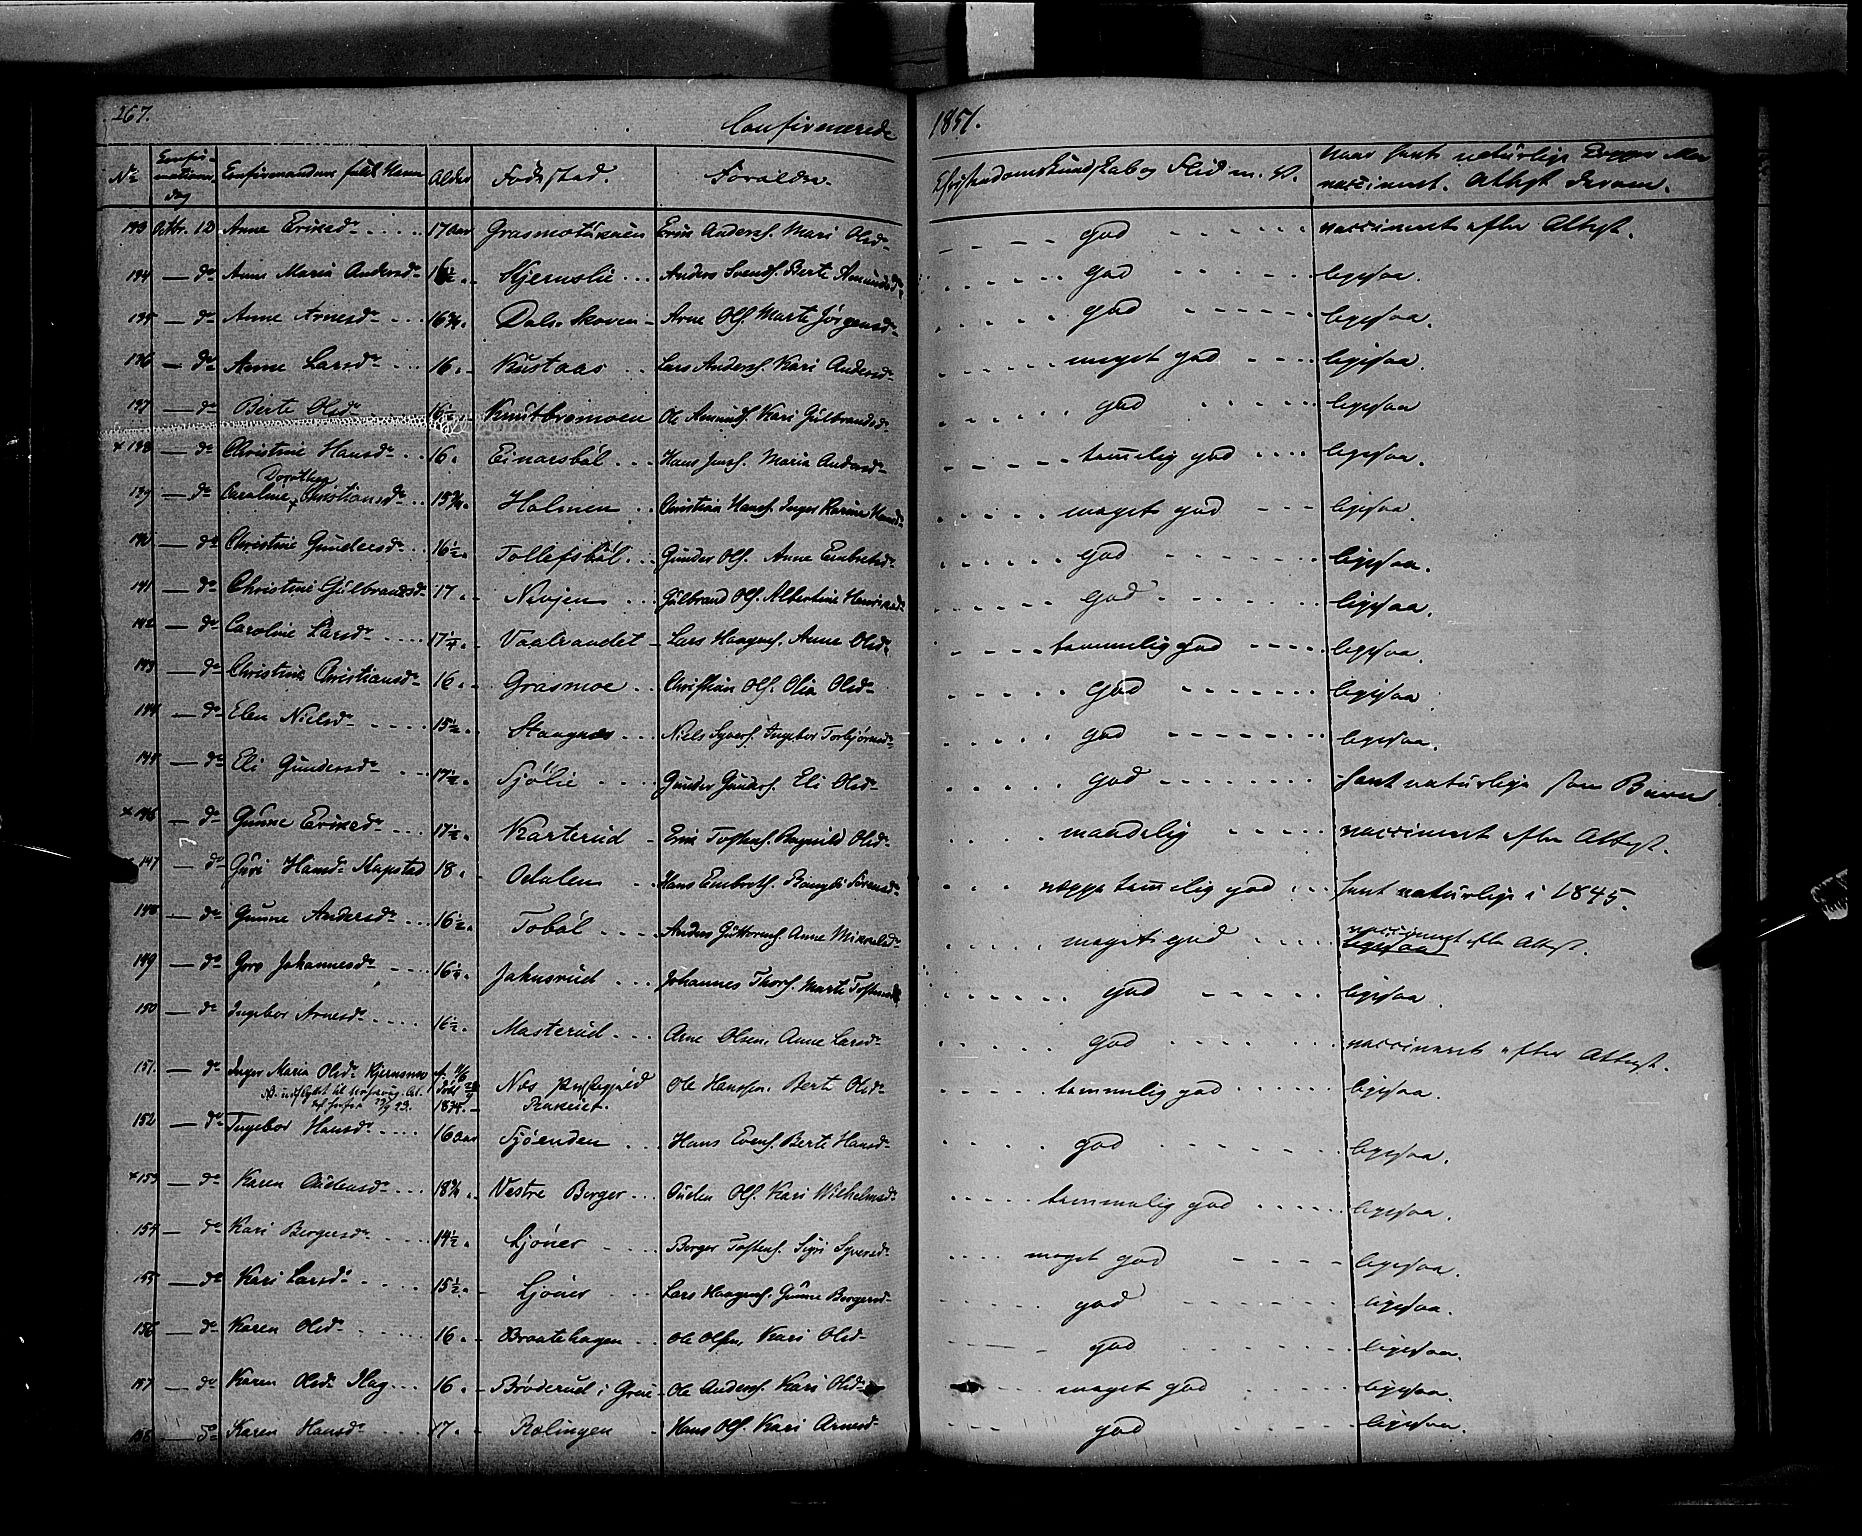 267. Confirmerede 1851.
No Confirmations dag Confirmandens fulde Navn Alder Fødested. Forældre. Christendomskundskab og Flid m. V. Havt naturlige Kopper eller vaccineret. Attest derom.
133 Octbr. 12 Anne Eriksdr 17 aar Grasmo Erik Anders. Mari Olsdr god vaccineret efter Attest.
134 — do Anne Maria Andersdr 16½ Kjernslie Anders Svends. Berte Amundsdr god ligesaa.
135 — do Anne Arnesdr 16¾ Dals skoven Arne Ols. Marte Jörgensdr god ligesaa.
136 — do Anne Larsdr 16 Kustaas Lars Anders. Kari Andersdr meget god ligesaa.
137 — do Berte Olsdr 16½ Knutbromoen Ole Amunds. Kari Gulbrandsdr god ligesaa
× 138 — do Christine Hansdr 16 Einarsböl Hans Jens. Maria Andersdr temelig god ligesaa.
139 — do Caroline Dorothea Christiansdr 15¾ Holmen Christian Hans. Inger Karine Hansdr meget god ligesaa.
140 — do Christine Gundersdr 16½ Tollefsböl Gunder Ols. Anne Embretsdr god ligesaa.
141 — do Christine Gulbrandsdr 17 Nevjen Gulbrand Ols. Albertine Henriksdr god ligesaa.
142 — do Caroline Larsdr 17¼ Vaalrandet Lars Haagens. Anne Olsdr temmelig god ligesaa.
143 — do Christine Christiansdr 16 Grasmoe Christian Ols. Olia Olsdr god ligesaa.
144 — do Elen Nielsdr 15½ Staagnæs Niels Syvers. Ingebor Torbjørnsdr god ligesaa.
145 — do Eli Gundersdr 17½ Sjölie Gunder Gunders. Eli Olsdr god havt naturlige som Barn
× 146 — do Gunne Eriksdr 17½ Karterud Erik Tostens. Ragnild Olsdr maadelig vaccineret efter Attest.
147 — do Guri Hansdr Kapstad 18 Odalen Hans Embreths. Rangdi Sörensdr neppe temelig god havt naturlige i 1845.
148 — do Gunne Andersdr 16½ Toböl Anders Guttorms. Anne Mikkelsdr meget god ligesaa vaccineret efter Attest.
149 — do Goro Johannesdr 16½ Jahnsrud Johannes Thors. Marte Tostensdr god ligesaa.
150 — do Ingebor Arnesdr 16½ Masterud Arne Olsen, Anne Larsdr god vaccineret efter Attest.
151. — do Inger Maria Olsdr Kjernsmo 1835. Næs Præstegjeld Ole Hansson. Berte Olsdr temmelig god ligesaa.
152 — do Ingebor Hansdr 16 aar Sjöenden Hans Evens. Berte Hansdr god ligesaa.
× 153 — do Karen Audensdr 18¾ Vestre Berger Auden Ols. Kari Wilhelmsdr temmelig god ligesaa.
154 — do Kari Bergersdr 14½ Ljöner Berger Tostens. Sigri Syversdr meget god ligesaa.
155 — do Kari Larsdr 15½ Ljöner Lars Haagens. Gunne Bergersdr god ligesaa.
156 — do Karen Olsdr 16 Braatehagen Ole Olsen, Kari Olsdr god ligesaa.
157 — do Karen Olsdr Hag 16 Bröderud i Grue Ole Anders. Kari Olsdr meget god ligesaa.
158 — do Karen Hansdr 17 Rolingen Hans Ols. Kari Arnesdr god ligesaa.